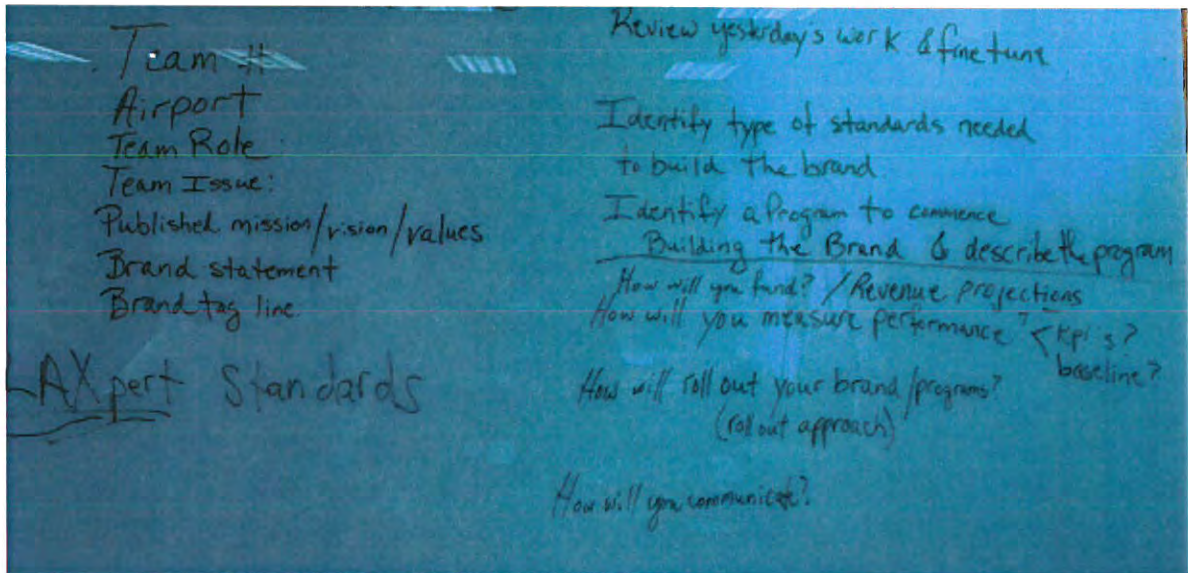 Team #
Airport
Team Role
Team Issue:
Published mission/vision/values
Brand statement
Brand tag line
LAXpert Standards
Review yesterday's work & fine tune
Identify type of standards needed
to build the brand
Identify a Program to commence
Building the Brand & describe the program
How will you fund? / Revenue projections
How will you measure performance? < Kpi's?
baseline?
How will roll out your brand/programs?
(roll out approach)
How will you communicate?